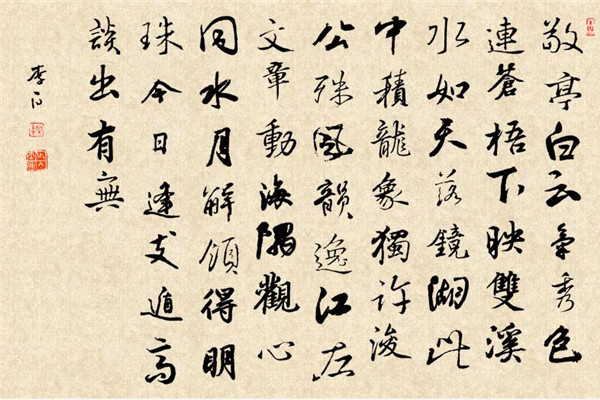 敬亭白云氣秀色
連蒼梧下映雙溪
水如天落鏡湖此
中積龍象獨許浚
公殊風韻逸江左
文章動海隅觀心
同水月解領得明
珠今日逢支遁高
談出有無
李白